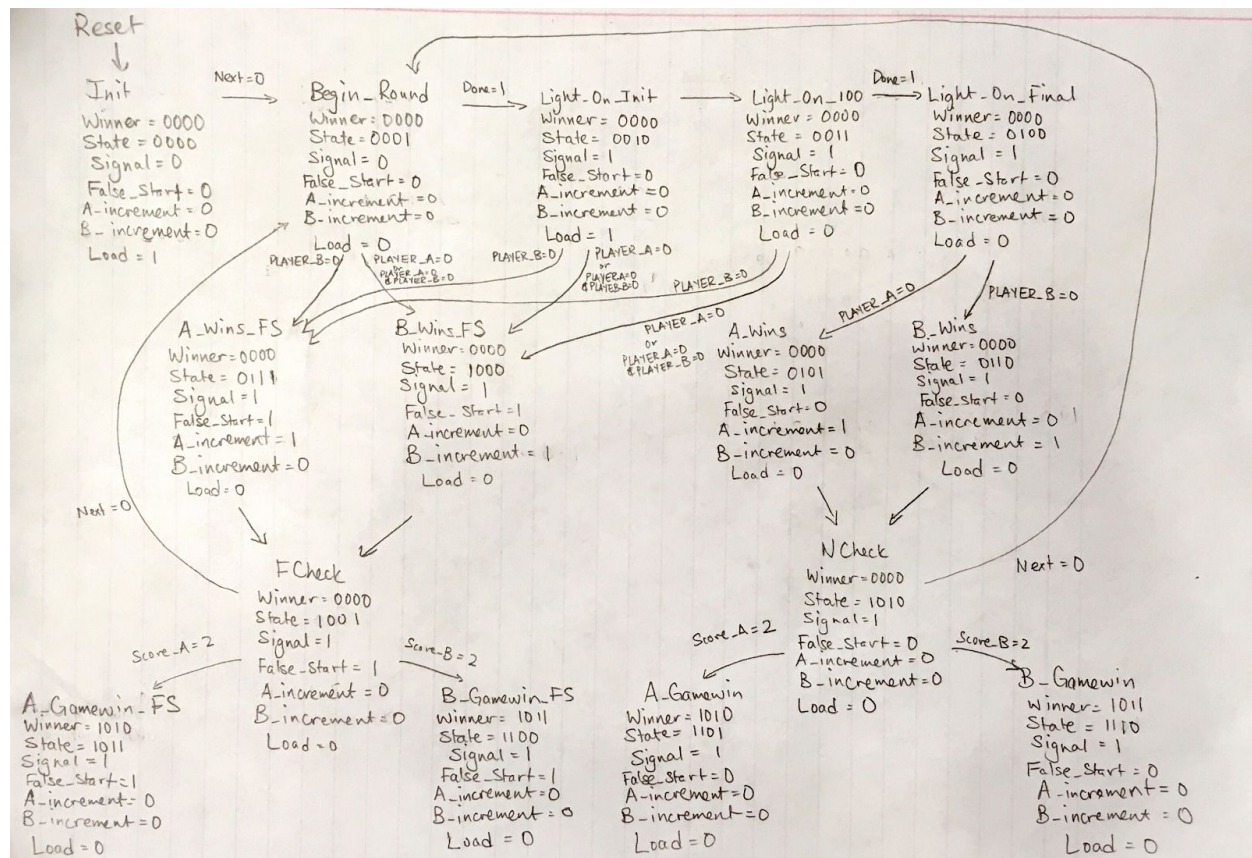 Reset
Next=0
Init
Winner = 0000
State = 0000
Signal = 0
False_Start = 0
A-increment = 0
B_increment = 0
Load = 1
Begin_Round
Winner = 0000
State = 0001
Signal = 0
False_Start = 0
A_increment = 0
B-increment = 0
Load = 0
Done=1
Light_On_Init
Winner = 0000
State = 0010
Signal = 1
False_Start = 0
A_increment = 0
B_increment = 0
Load = 1
Light_On_100
Winner = 0000
State = 0011
Signal = 1
False_Start = 0
A_increment = 0
B_increment = 0
Load = 0
Done=1
Light_On_Final
Winner = 0000
State = 0100
Signal = 1
False_Start = 0
A_increment = 0
B_increment = 0
Load = 0
PLAYER_B=0
PLAYER_A=0
or
PLAYER_A=0
&PLAYER_B=0
PLAYER_B=0
PLAYER_A=0
or
PLAYER_A=0
&PLAYER_B=0
PLAYER_B=0
PLAYER_A=0
or
PLAYER_A=0
&PLAYER_B=0
PLAYER_A=0
PLAYER_B=0
A_Wins_FS
Winner=0000
State = 0111
Signal = 1
False_Start = 1
A_increment = 1
B-increment = 0
Load = 0
B_Wins_FS
Winner = 0000
State = 1000
Signal = 1
False_Start = 1
A_increment = 0
B-increment = 1
Load = 0
A_Wins
Winner = 0000
State = 0101
Signal = 1
False_Start = 0
A_increment = 1
B_increment = 0
Load = 0
B_Wins
Winner = 0000
State = 0110
Signal = 1
False_Start = 0
A_increment = 0
B_increment = 1
Load = 0
Next = 0
FCheck
Winner = 0000
State = 1001
Signal = 1
False_Start = 1
A_increment = 0
B_increment = 0
Load = 0
NCheck
Winner = 0000
State = 1010
Signal = 1
False_Start = 0
A_increment = 0
B-increment = 0
Load = 0
Next = 0
Score_A=2
Score_B=2
Score_A=2
Score_B=2
A_Gamewin_FS
Winner = 1010
State = 1011
Signal = 1
False_Start = 1
A_increment = 0
B-increment = 0
Load = 0
B_Gamewin_FS
Winner = 1011
State = 1100
Signal = 1
False_Start = 1
A_increment = 0
B_increment = 0
Load = 0
A_Gamewin
Winner = 1010
State = 1101
Signal = 1
False_Start = 0
A-increment = 0
B_increment = 0
Load = 0
B_Gamewin
Winner = 1011
State = 1110
Signal = 1
False_Start = 0
A_increment = 0
B_increment = 0
Load = 0